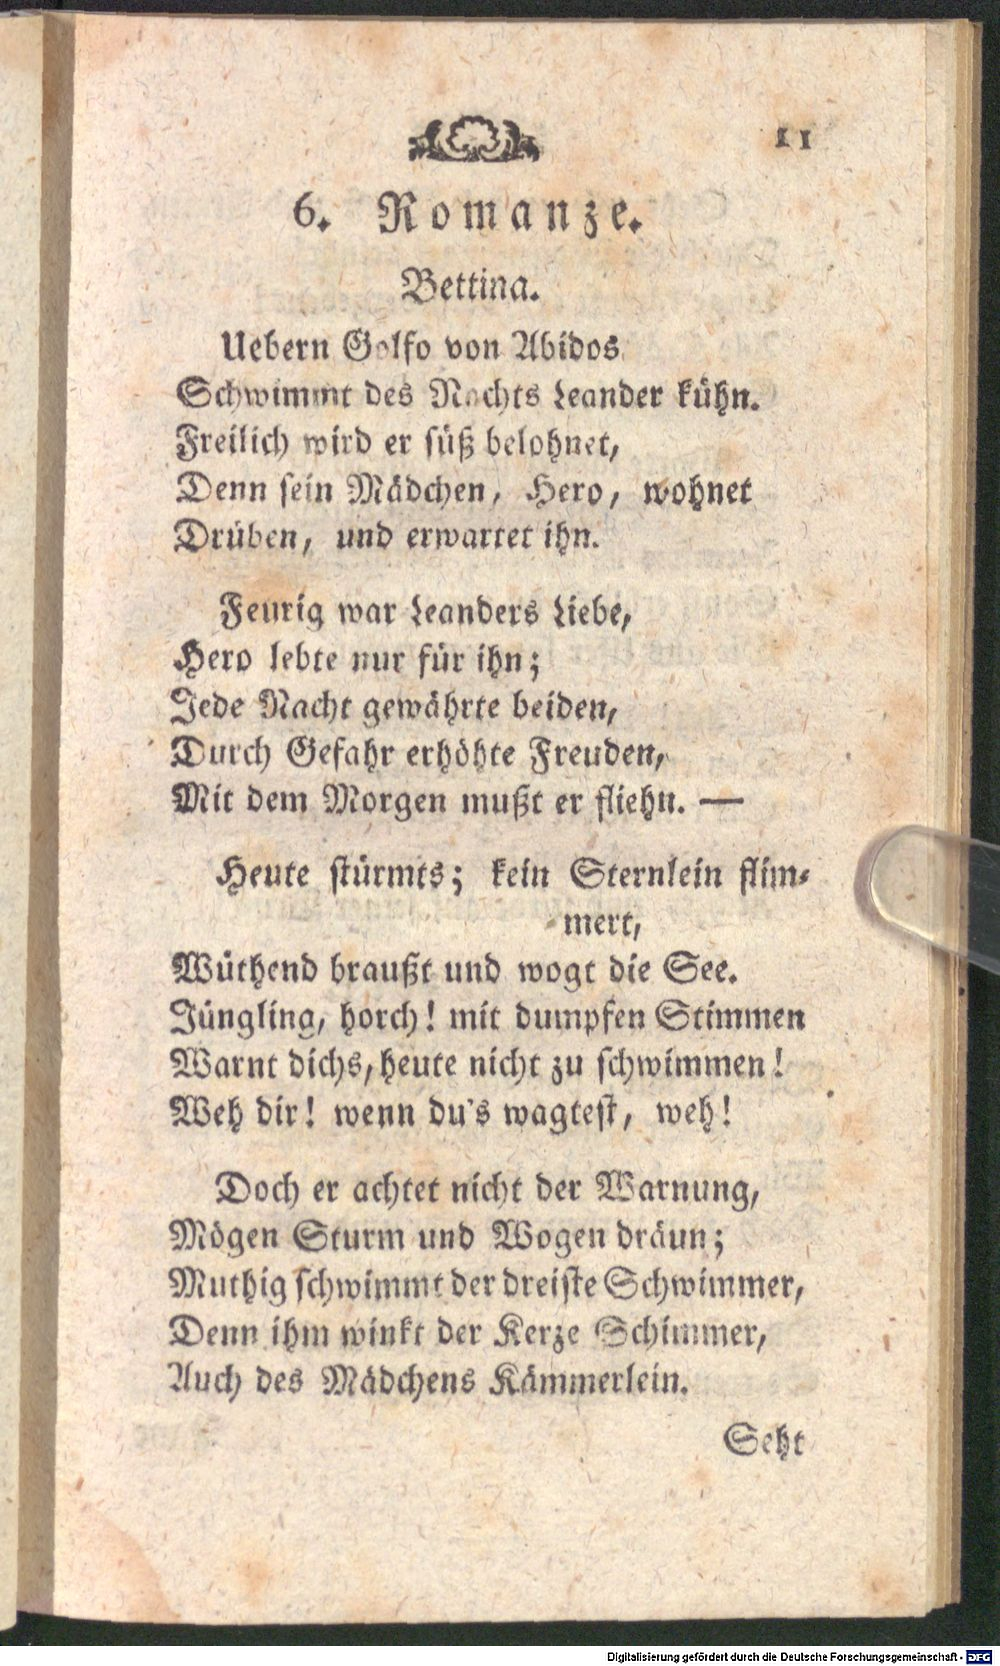 11
6. Romanze.
Bettina.
Uebern Golfo von Abidos
Schwimmt des Nachts Leander kühn.
Freilich wird er süß belohnet,
Denn sein Mädchen, Hero, wohnet
Drüben, und erwartet ihn.
Feurig war Leanders Liebe,
Hero lebte nur für ihn;
Jede Nacht gewährte beiden,
Durch Gefahr erhöhte Freuden,
Mit dem Morgen mußt er fliehn. —
Heute stürmts; kein Sternlein flim-
mert,
Wüthend braußt und wogt die See.
Jüngling, horch! mit dumpfen Stimmen
Warnt dichs, heute nicht zu schwimmen!
Weh dir! wenn du's wagtest, weh!
Doch er achtet nicht der Warnung,
Mögen Sturm und Wogen dräun;
Muthig schwimmt der dreiste Schwimmer,
Denn ihm winkt der Kerze Schimmer,
Auch des Mädchens Kämmerlein.
Seht
Digitalisierung gefördert durch die Deutsche Forschungsgemeinschaft - DFG